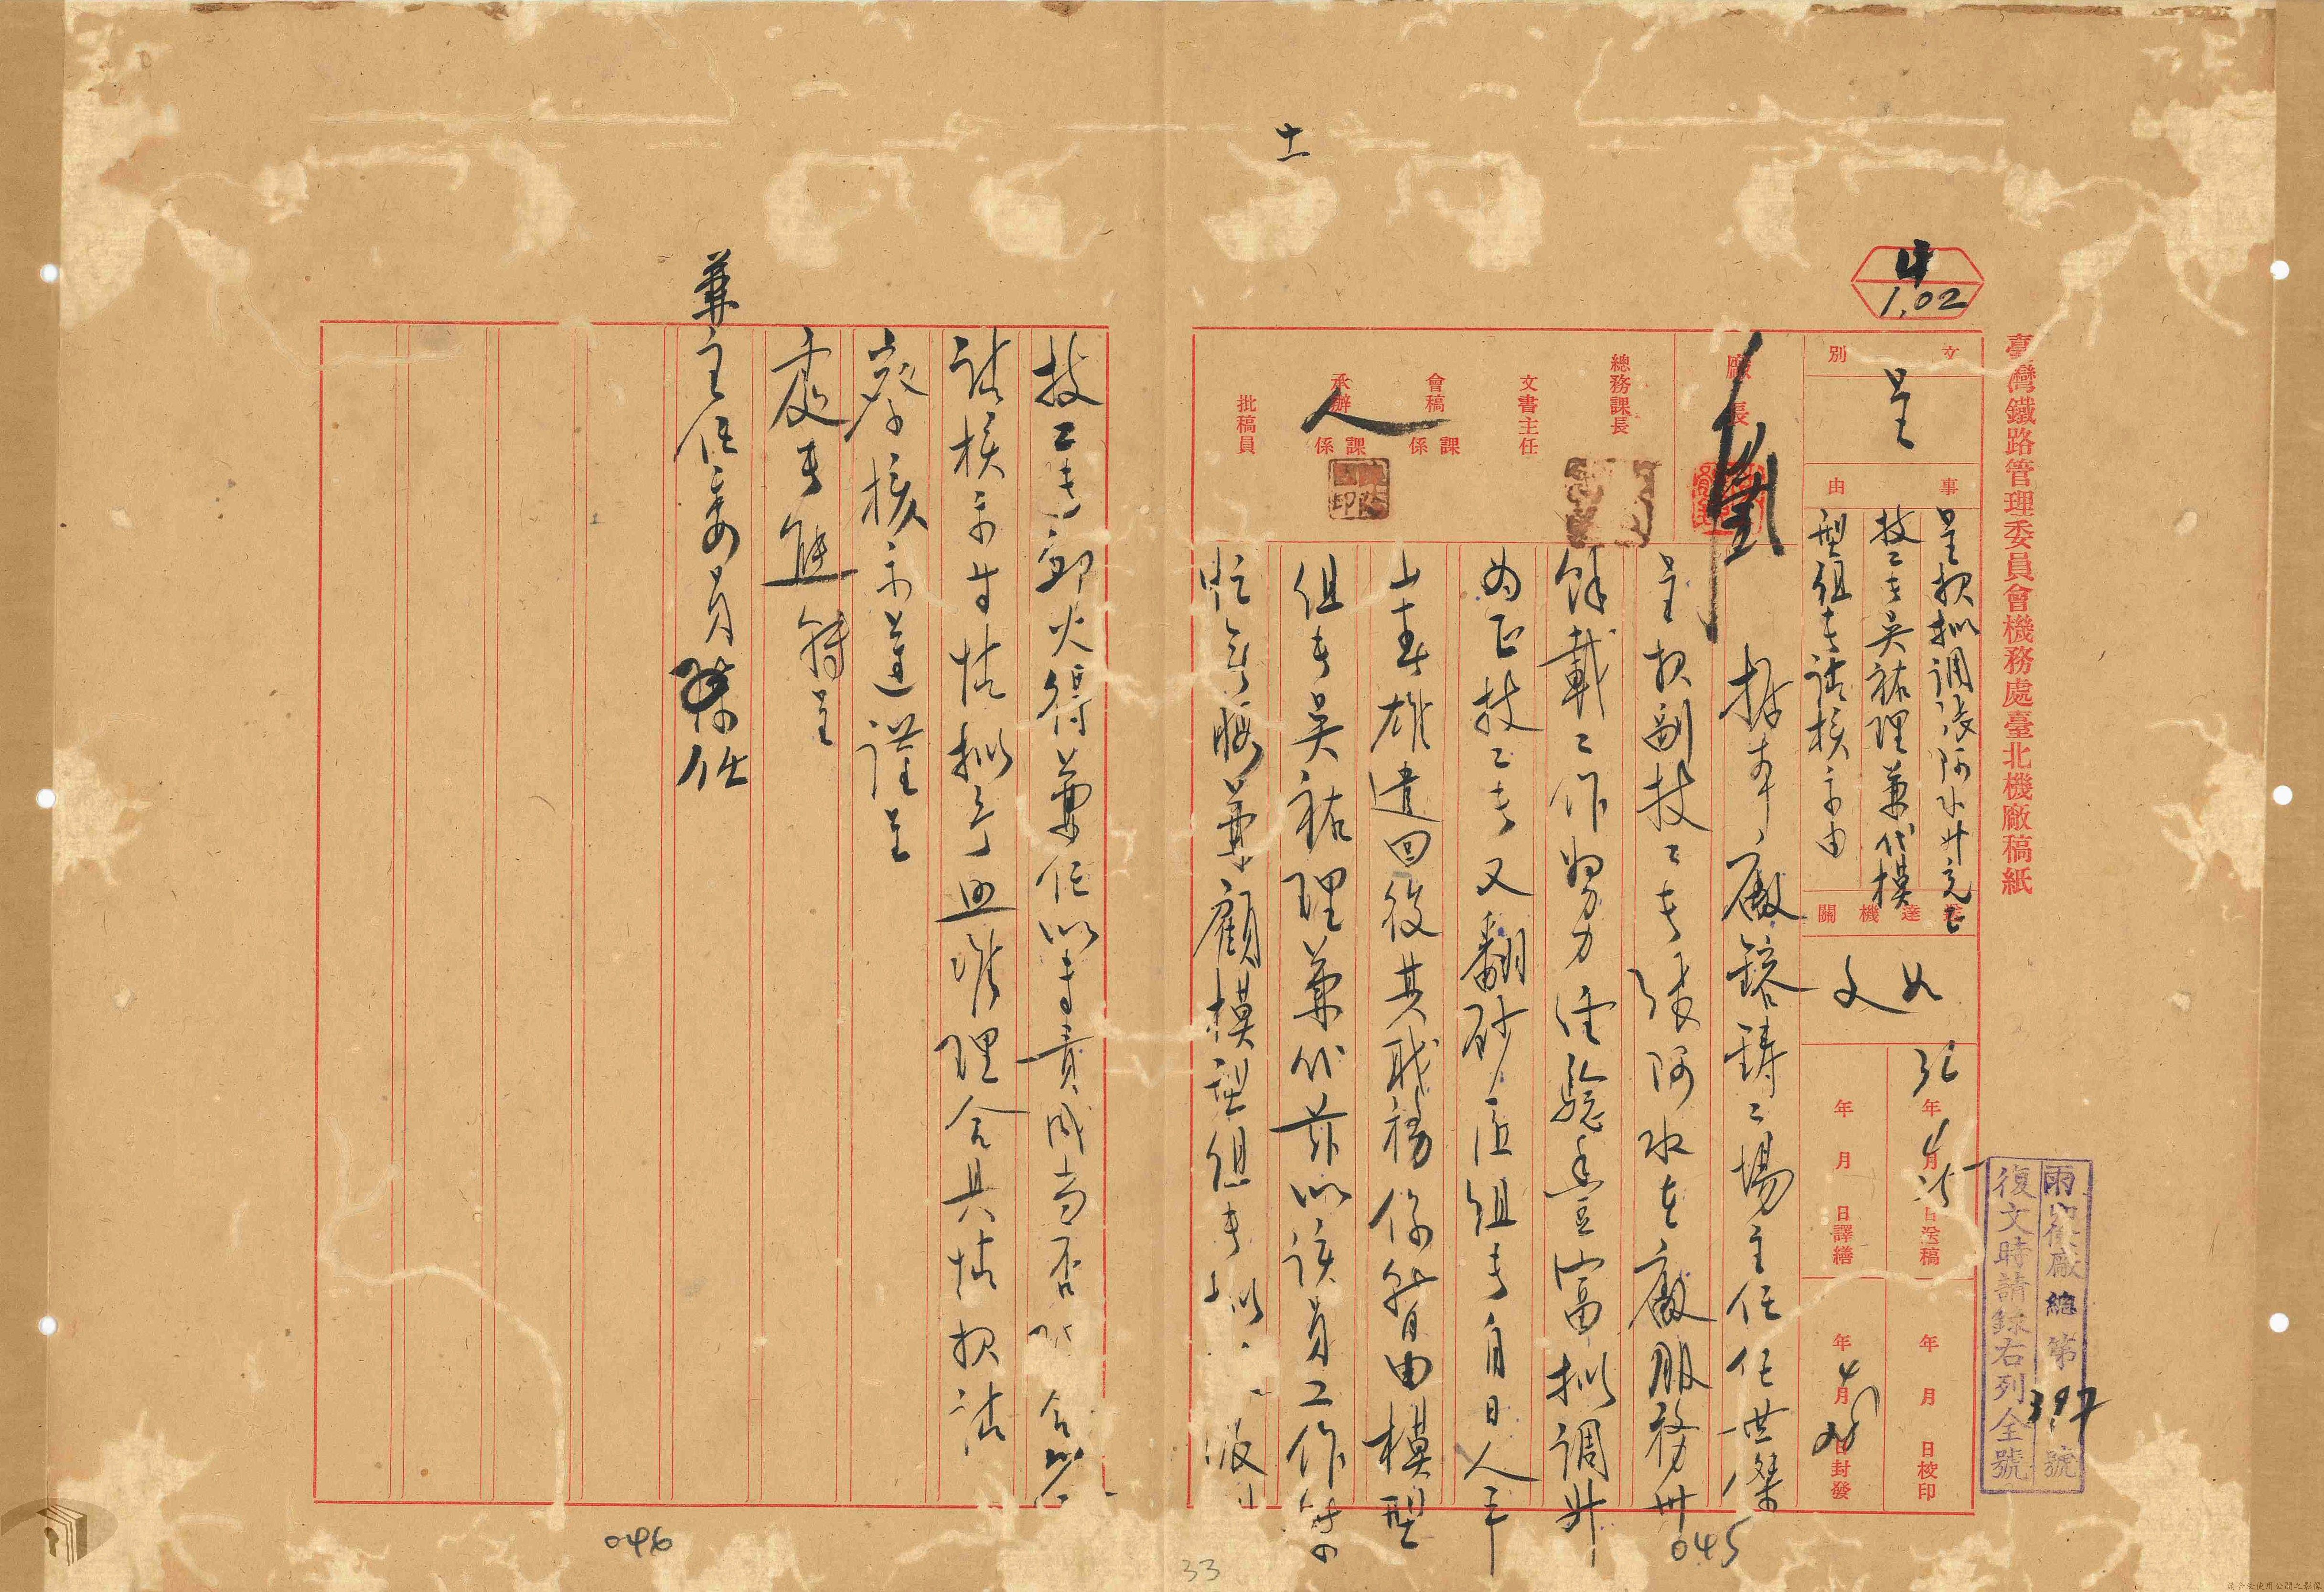 臺灣鐵路管理委員會機務處臺北機廠稿紙
4
1.02
十二
文別
呈
事由
呈報擬調張阿水升充正
技工長吳祐理兼代模
型組長請核示由
送達機關
如文
年 月 日送稿
年 月 日譯繕
年 月 日校印
年 月 日封發
雨北機廠總第397號
復文時請錄右列全號
廠長
總務課長
文書主任
會稿
課係
承辦
課係
批稿員
據本廠鎔鑄工場主任任世傑
呈報副技工長張阿水在廠服務卅
餘載工作努力經驗豐富擬調升
為正技工長又翻砂 組長自日人平
山春雄遣回後其職務係暫由模型
組長吳祐理兼代茲以該員工作繁
忙無暇兼顧模型組長擬
技工長鄒火得兼任以專責成當否
請核示等情擬予照准理合具情報請
察核示遵謹呈
處長 轉呈
兼主任委員陳 任
045
046
33